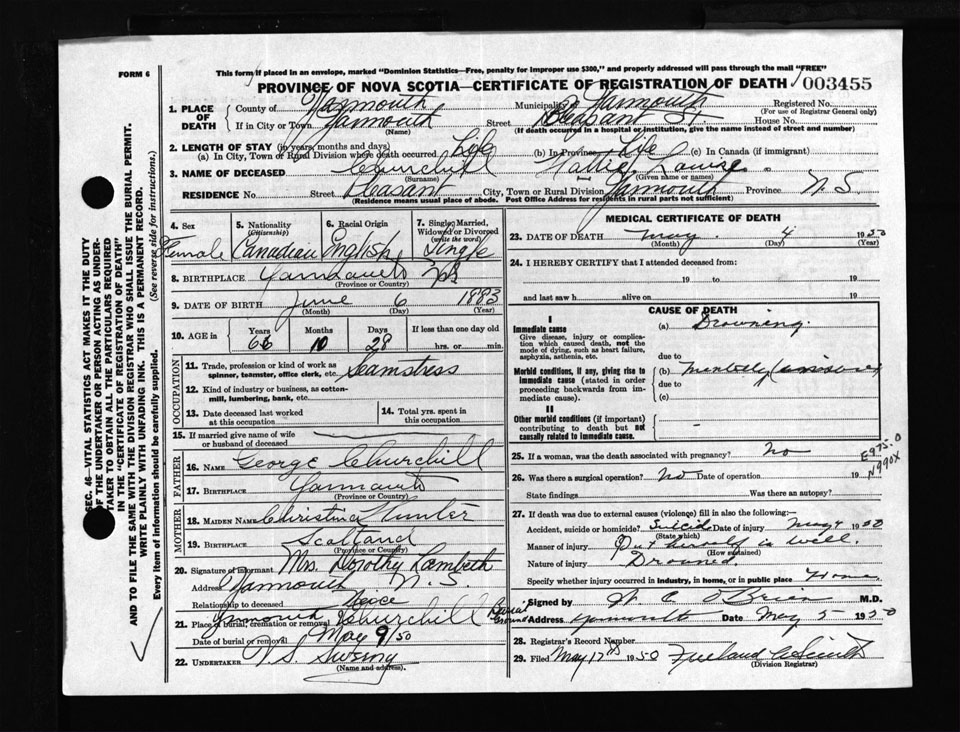 FORM 6
This form if placed in an envelope, marked "Dominion Statistics—Free, penalty for improper use $300," and properly addressed will pass through the mail "FREE"
PROVINCE OF NOVA SCOTIA—CERTIFICATE OF REGISTRATION OF DEATH 003455
1. PLACE OF DEATH County of Yarmouth Municipality Yarmouth Registered No.
(For use of Registrar General only)
If in City or Town Yarmouth Street Pleasant St. House No.
(Name) (If death occurred in a hospital or institution, give the name instead of street and number)
2. LENGTH OF STAY (in years, months and days)
(a) In City, Town or Rural Division where death occurred Life (b) In Province Life (c) In Canada (if immigrant)
3. NAME OF DECEASED Churchill Louise
(Surname) (Given name or names)
RESIDENCE No. Street Pleasant City, Town or Rural Division Yarmouth Province N S
(Residence means usual place of abode. Post Office Address for residents in rural parts not sufficient)
4. Sex Female
5. Nationality (Citizenship) Canadian
6. Racial Origin English
7. Single, Married, Widowed or Divorced (write the word) Single
8. BIRTHPLACE Yarmouth NS
(Province or Country)
9. DATE OF BIRTH June 6 1883
(Month) (Day) (Year)
10. AGE in Years 66 Months 10 Days 28 If less than one day old
hrs. or min.
OCCUPATION
11. Trade, profession or kind of work as spinner, teamster, office clerk, etc. Seamstress
12. Kind of industry or business, as cotton-mill, lumbering, bank, etc.
13. Date deceased last worked at this occupation
14. Total yrs. spent in this occupation
15. If married give name of wife or husband of deceased
FATHER
16. NAME George Churchill
17. BIRTHPLACE Yarmouth
(Province or Country)
MOTHER
18. MAIDEN NAME Christina Hunter
19. BIRTHPLACE Scotland
(Province or Country)
20. Signature of informant Mrs. Dorothy Lambeth
Address Yarmouth N. S.
Relationship to deceased Neice
21. Place of burial, cremation or removal Yarmouth Churchill Burial Ground
Date of burial or removal May 9/50
22. UNDERTAKER V. S. Sweeny
(Name and address)
MEDICAL CERTIFICATE OF DEATH
23. DATE OF DEATH May 4 1950
(Month) (Day) (Year)
24. I HEREBY CERTIFY that I attended deceased from:
19 to 19
and last saw h alive on 19
CAUSE OF DEATH
I
Immediate cause
Give disease, injury or complication which caused death, not the mode of dying, such as heart failure, asphyxia, asthenia, etc.
(a) Drowning.
due to
Morbid conditions, if any, giving rise to immediate cause (stated in order proceeding backwards from immediate cause).
(b) Mentally
due to
(c)
II
Other morbid conditions (if important) contributing to death but not causally related to immediate cause.
25. If a woman, was the death associated with pregnancy? No
E975.0
N990X
26. Was there a surgical operation? No Date of operation 19
State findings Was there an autopsy?
27. If death was due to external causes (violence) fill in also the following:—
Accident, suicide or homicide? Suicide Date of injury May 4 1950
(State which)
Manner of injury Put herself in well.
(How sustained)
Nature of injury Drowned.
Specify whether injury occurred in industry, in home, or in public place Home
Signed by C O'Brien M.D.
Address Yarmouth Date May 5 1950
28. Registrar's Record Number
29. Filed May 17th 1950 Freeland C Smith
(Division Registrar)
SEC. 46—VITAL STATISTICS ACT MAKES IT THE DUTY
OF THE UNDERTAKER OR PERSON ACTING AS UNDER-
TAKER TO OBTAIN ALL THE PARTICULARS REQUIRED
IN THE "CERTIFICATE OF REGISTRATION OF DEATH"
AND TO FILE THE SAME WITH THE DIVISION REGISTRAR WHO SHALL ISSUE THE BURIAL PERMIT.
WRITE PLAINLY WITH UNFADING INK. THIS IS A PERMANENT RECORD.
Every item of information should be carefully supplied. (See reverse side for instructions.)